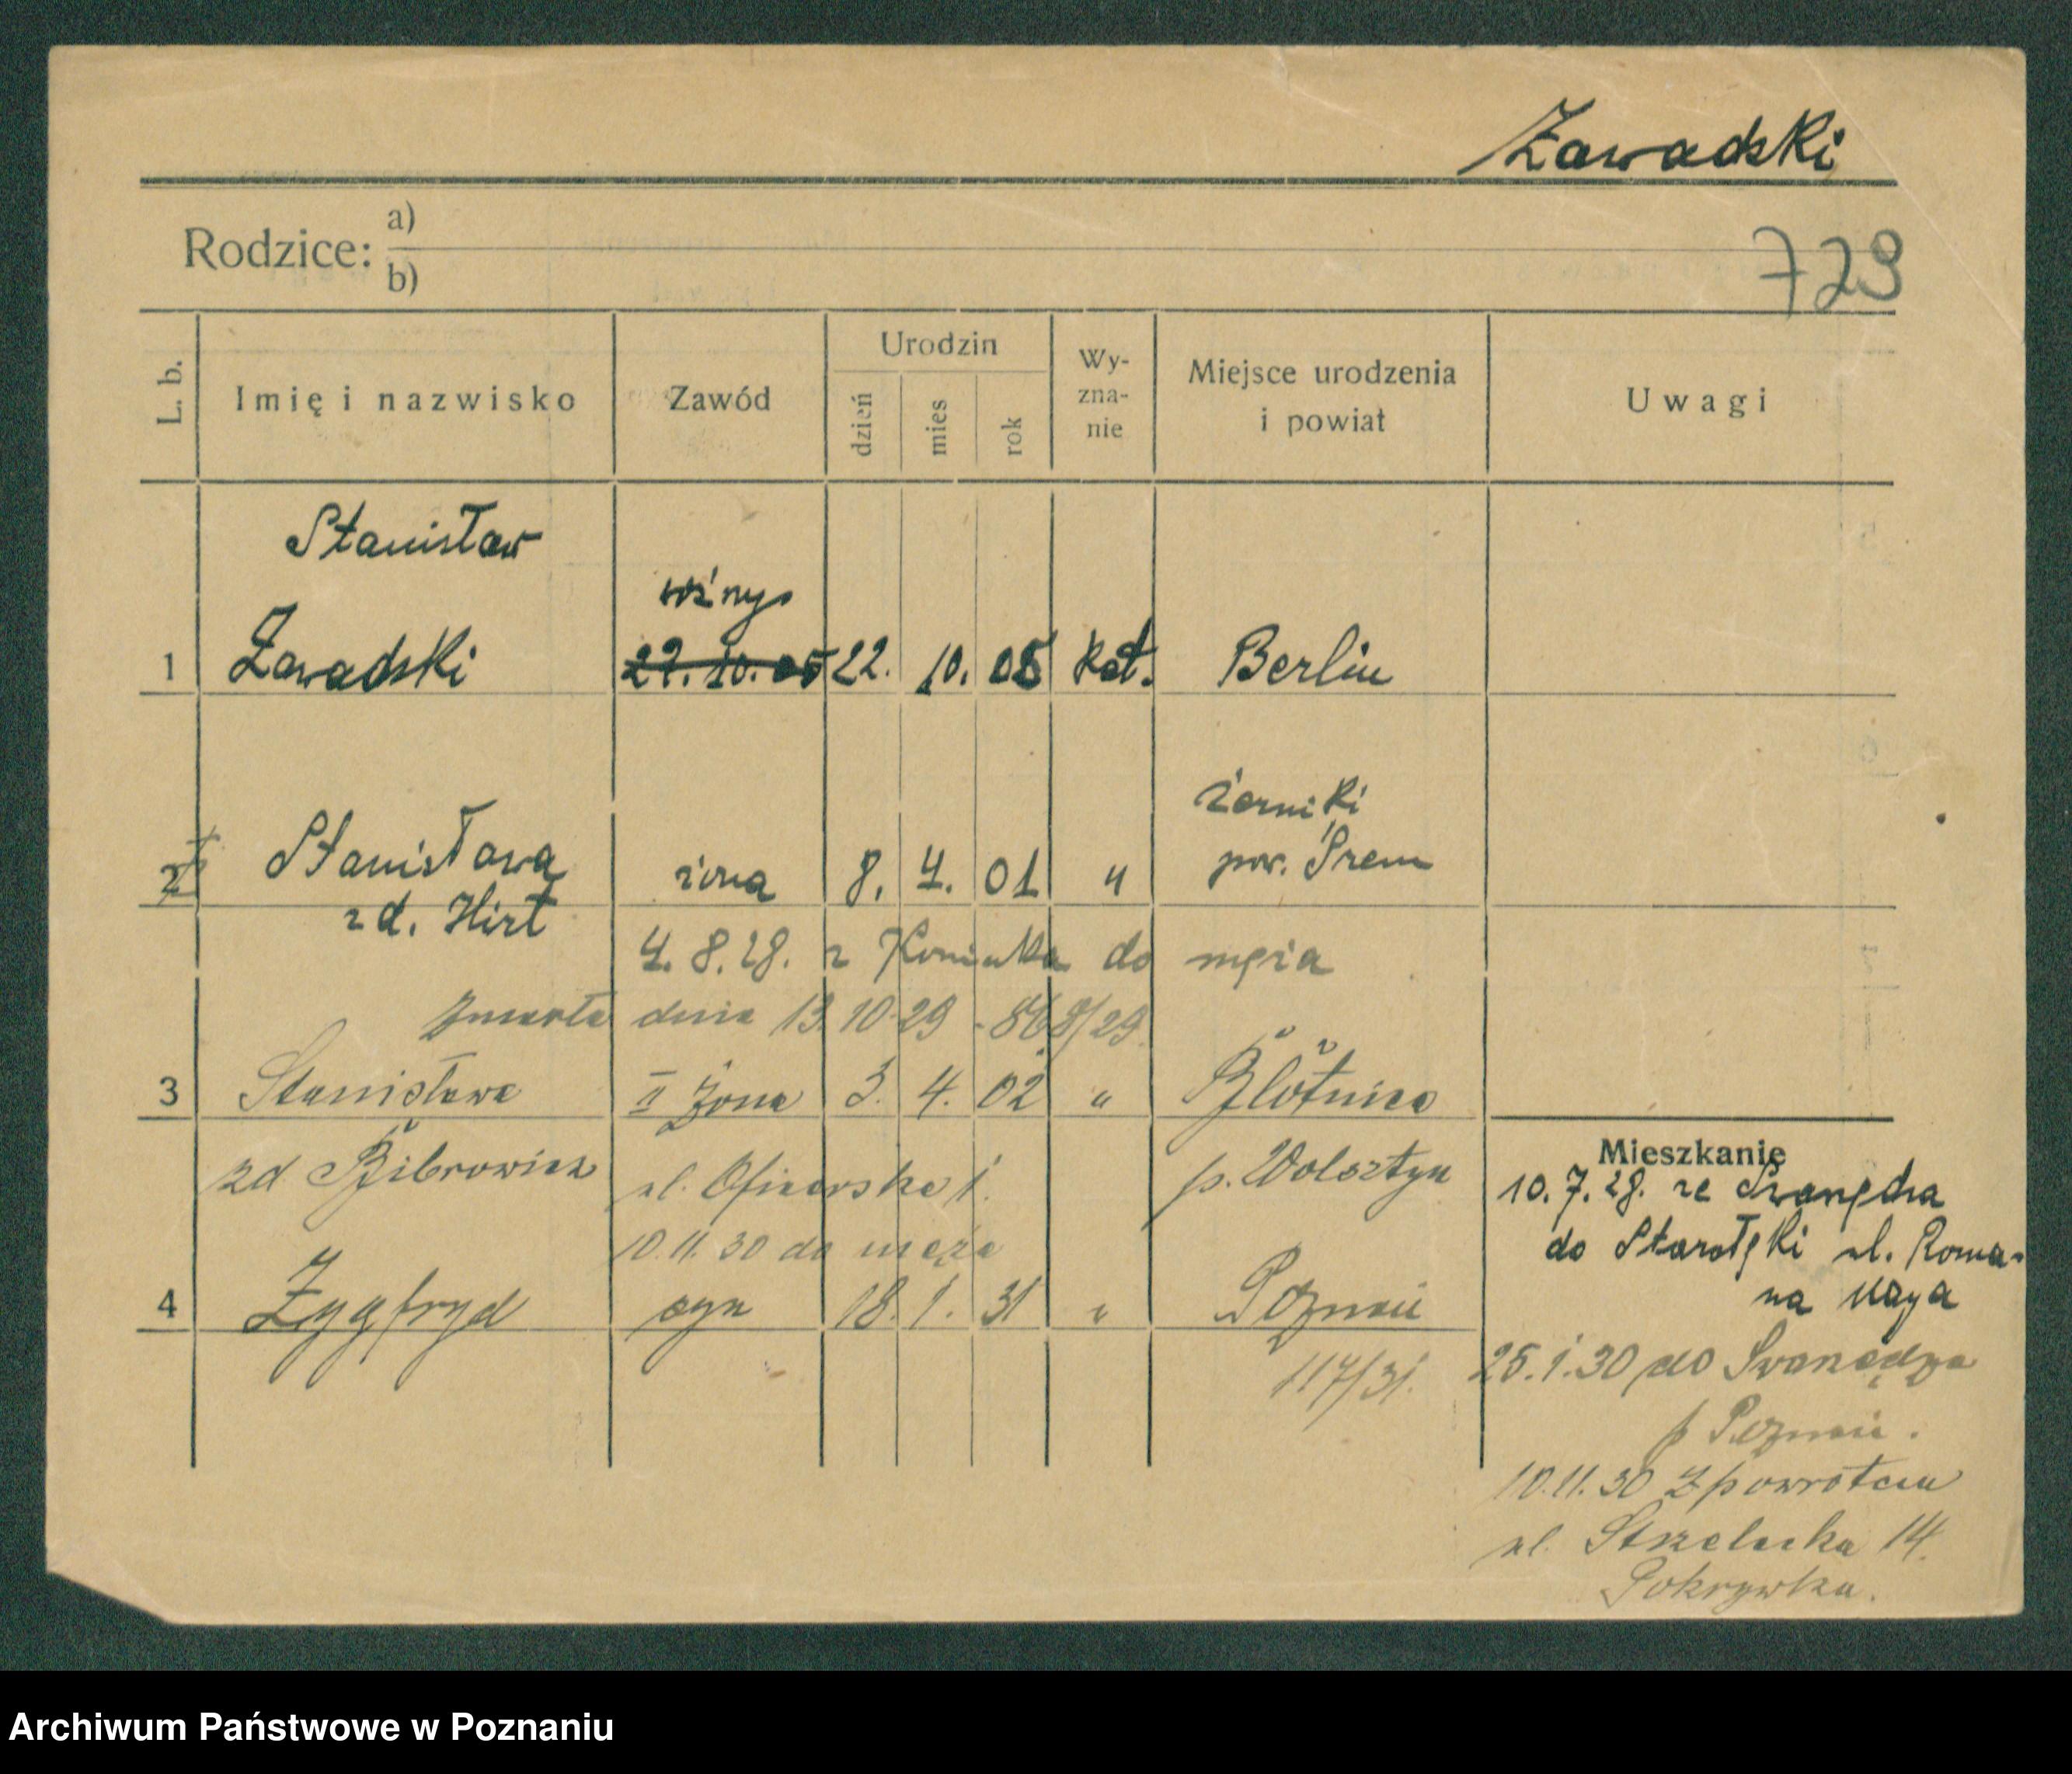 Zawadski
Rodzice: a)
b)
729
L. b.
Imię i nazwisko
Zawód
Urodzin
dzień
mies
rok
Wy-
zna-
nie
Miejsce urodzenia
i powiat
Uwagi
Stanisław
woźny
1 Zawadski 22. 10. 05 22. 10. 05 kat. Berlin
żerniki
pow. Śrem
2 Stanisława żona 8. 4. 01 "
z d. Hirt
4. 8. 28. z Koninka do męża
Zmarła dnia 13. 10. 29 - 868/29.
3 Stanisława II żona 3. 4. 02 " Błotnica
zd Bibrowicz ul. Oficerska 1. p. Wolsztyn
10. 11. 30 do męża
4 Zygfryd syn 18. 1. 31 " Poznań
117/31.
Mieszkanie
10. 7. 28. ze Swarzędza
do Starołęki ul. Roma-
na Maya
25. 1. 30 do Swarzędza
p Poznań.
10. 11. 30 Z powrotem
ul. Strzelecka 14.
Pokrywka.
Archiwum Państwowe w Poznaniu